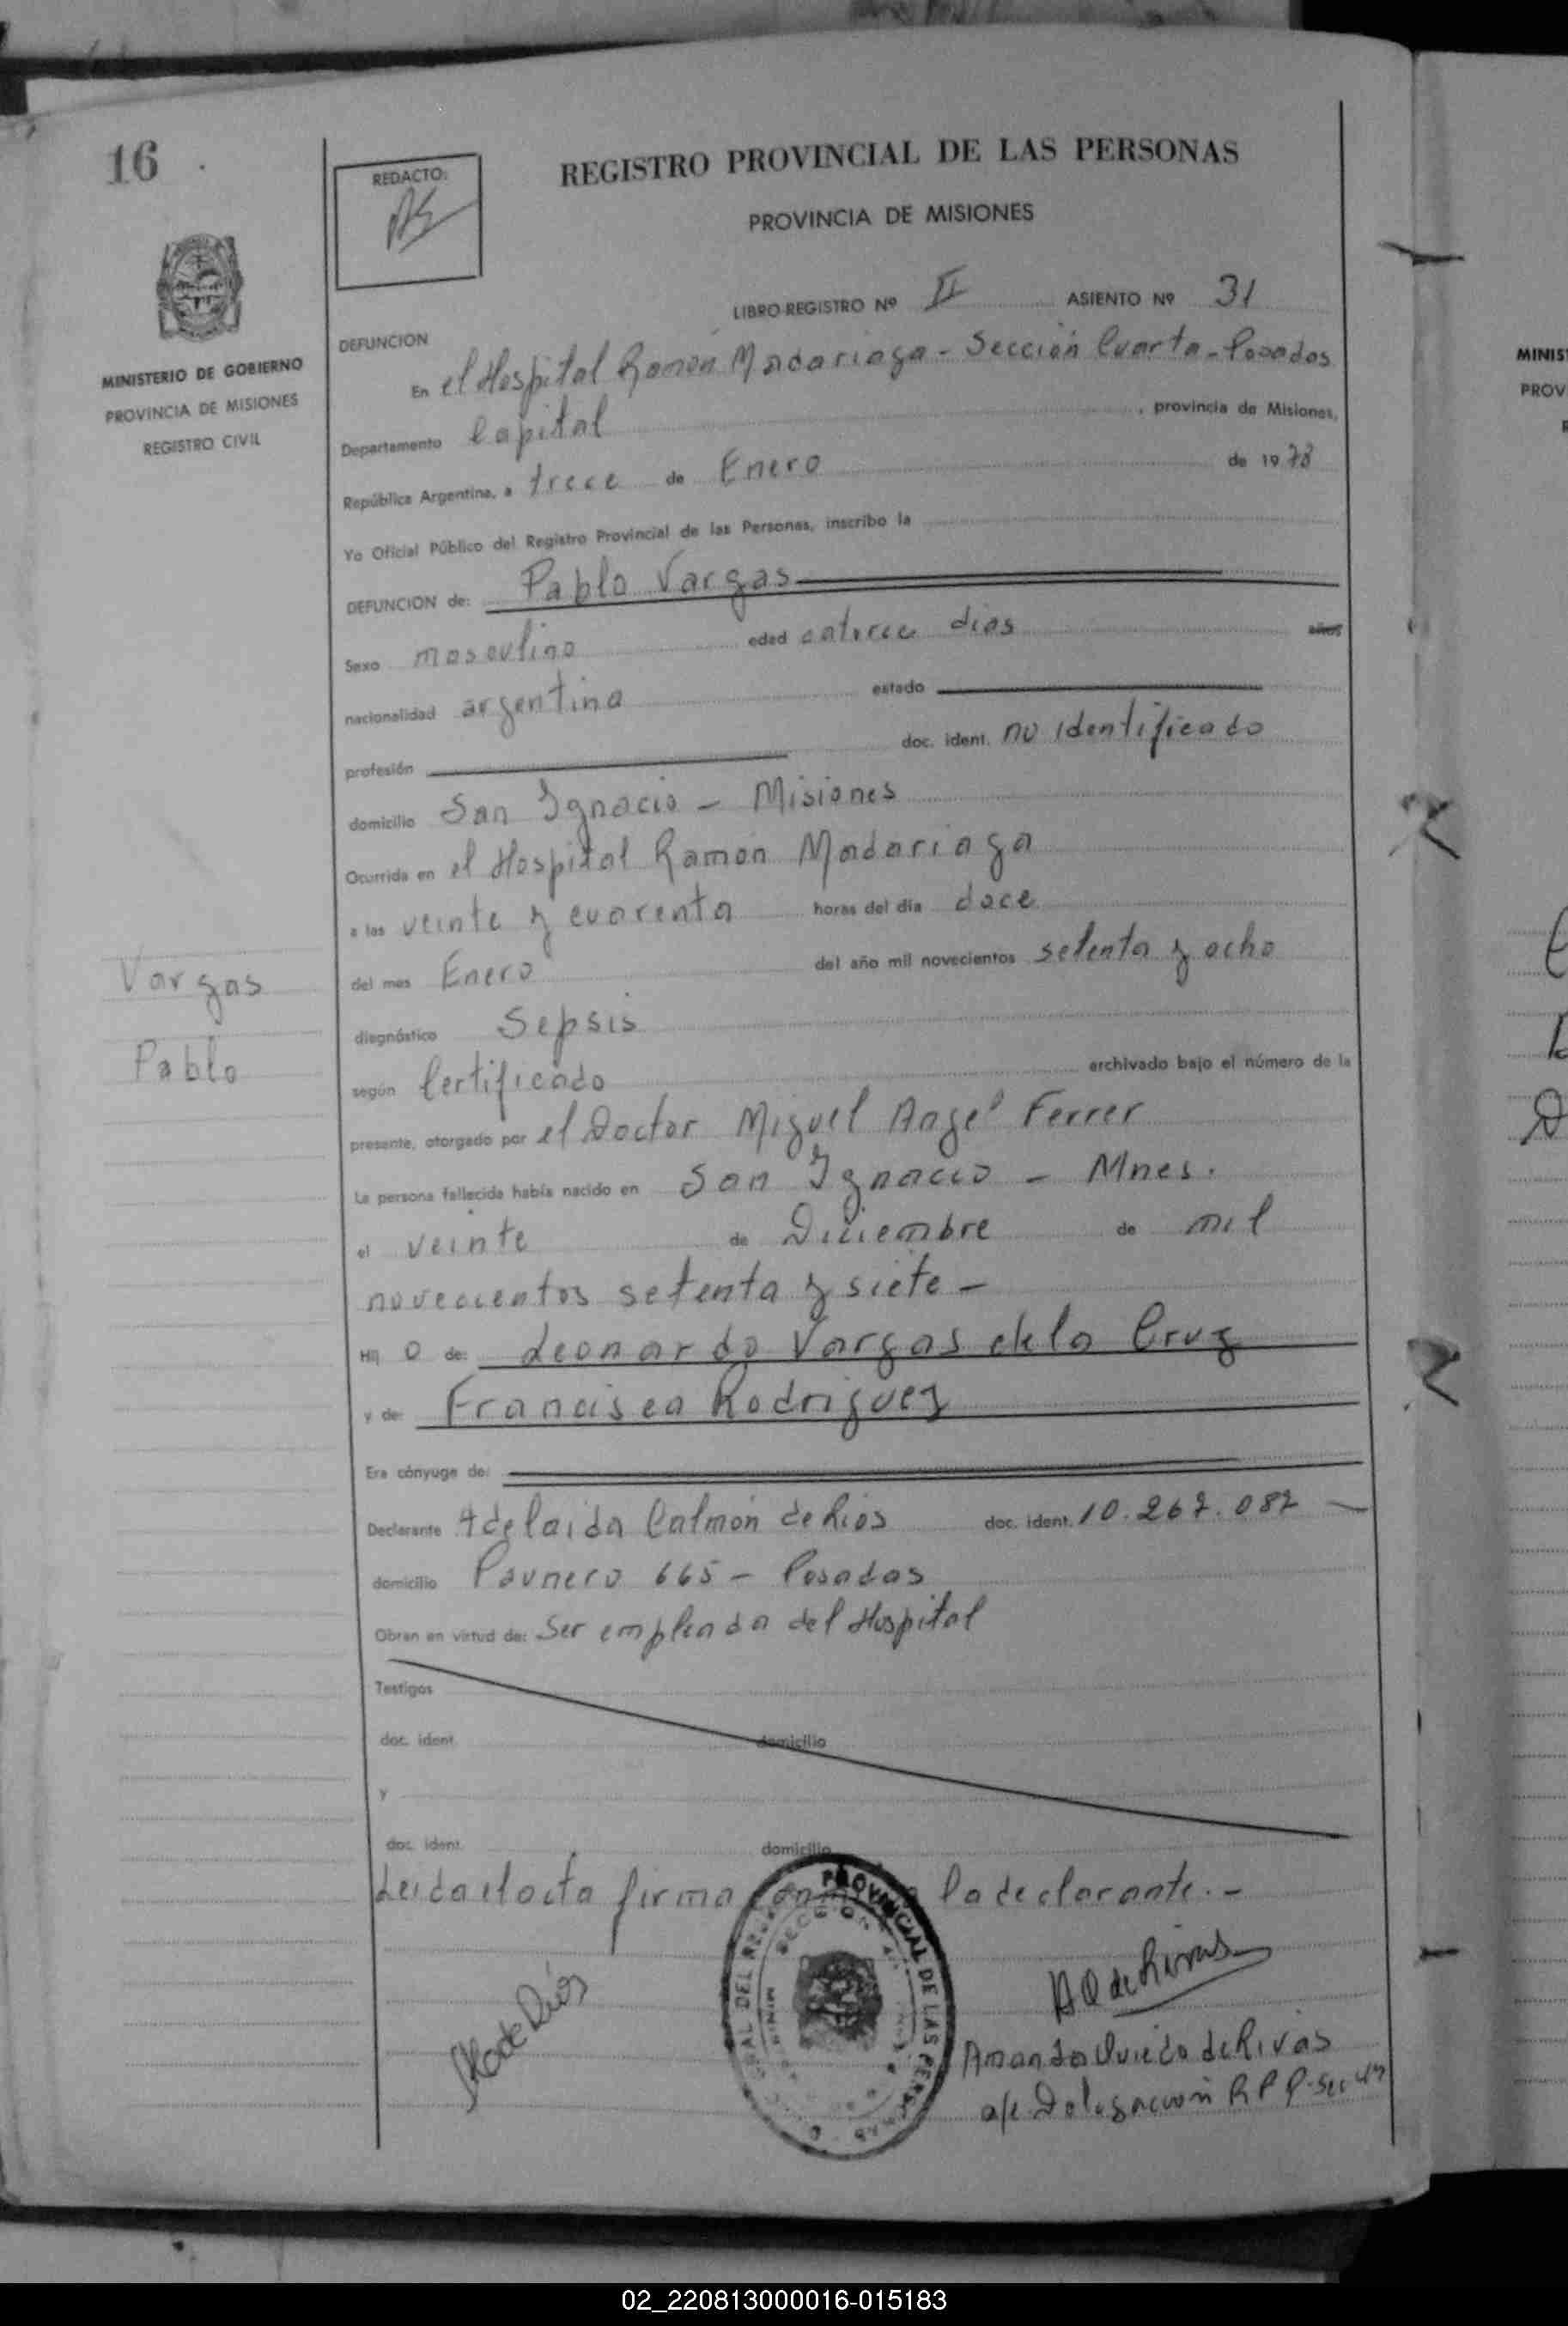 16
REDACTO:
REGISTRO PROVINCIAL DE LAS PERSONAS
PROVINCIA DE MISIONES
MINISTERIO DE GOBIERNO
PROVINCIA DE MISIONES
REGISTRO CIVIL
LIBRO-REGISTRO Nº II ASIENTO Nº 31
DEFUNCION
En el Hospital Ramón Madariaga - Sección Cuarta - Posadas
Departamento Capital , provincia de Misiones,
República Argentina, a trece de Enero de 1978
Yo Oficial Público del Registro Provincial de las Personas, inscribo la
DEFUNCION de: Pablo Vargas
Sexo masculino edad catorce dias años
nacionalidad argentina estado
profesión doc. ident. no identificado
domicilio San Ignacio - Misiones
Ocurrida en el Hospital Ramón Madariaga
a las veinte y cuarenta horas del día doce
del mes Enero del año mil novecientos setenta y ocho
Vargas
Pablo
diagnóstico Sepsis
según Certificado archivado bajo el número de la
presente, otorgado por el Doctor Miguel Angel Ferrer
La persona fallecida había nacido en San Ignacio - Mnes.
el veinte de Diciembre de mil
novecientos setenta y siete -
Hij o de: Leonardo Vargas de la Cruz
y de: Francisca Rodriguez
Era cónyuge de:
Declarante Adelaida Calmón de Rios doc. ident. 10.267.087
domicilio Paunero 665 - Posadas
Obran en virtud de: Ser empleada del Hospital
Testigos
doc. ident. domicilio
y
doc. ident. domicilio
Leida el acta firma la declarante. -
PROVINCIAL DE LAS PERSONAS
de Rios
AO de Rivas
Amanda Oviedo de Rivas
a/c Delegación R P P. Sec 4ª
MINIS
PROV
02_220813000016-015183